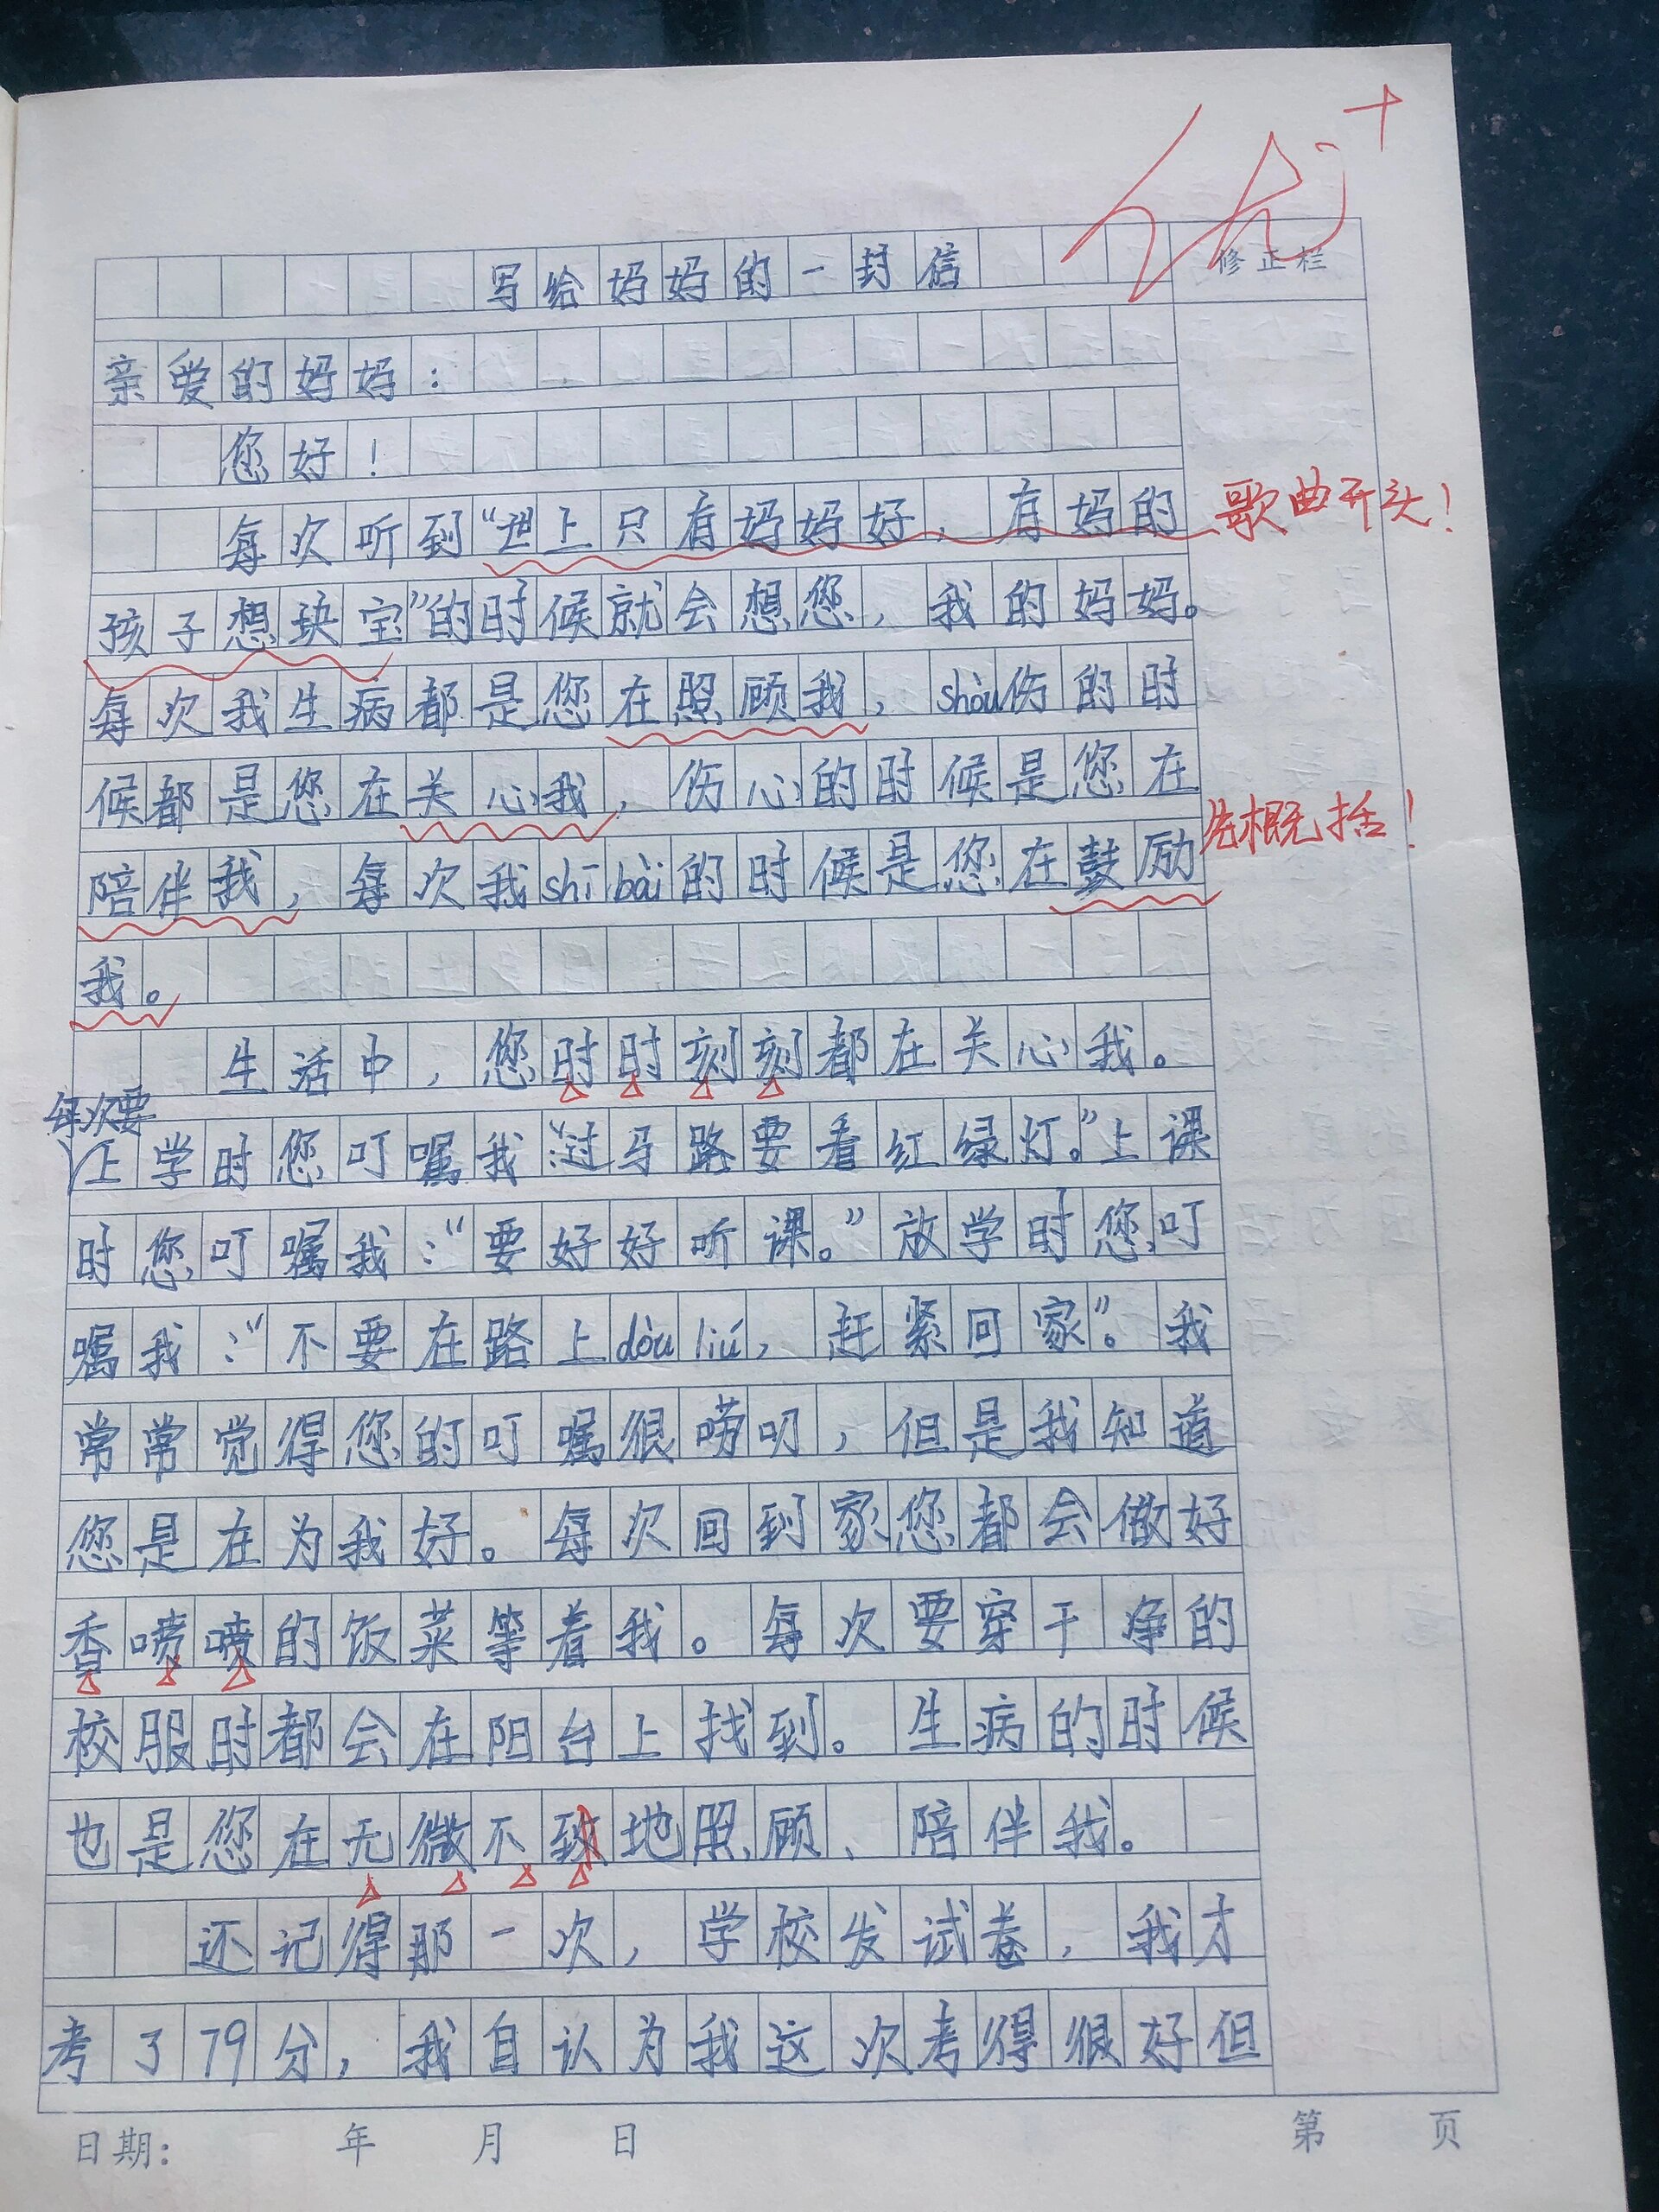 优+
写给妈妈的一封信
修正栏
亲爱的妈妈：
您好！
每次听到“世上只有妈妈好，有妈的
歌曲开头！
孩子想块宝”的时候就会想您，我的妈妈。
每次我生病都是您在照顾我，shòu伤的时
候都是您在关心我，伤心的时候是您在
陪伴我，每次我shī bài的时候是您在鼓励
先概括！
我。
生活中，您时时刻刻都在关心我。
每次要
上学时您叮嘱我：“过马路要看红绿灯。”上课
时您叮嘱我：“要好好听课。”放学时您叮
嘱我：“不要在路上dòu liú，赶紧回家”。我
常常觉得您的叮嘱很唠叨，但是我知道
您是在为我好。每次回到家您都会做好
香喷喷的饭菜等着我。每次要穿干净的
校服时都会在阳台上找到。生病的时候
也是您在无微不致地照顾、陪伴我。
还记得那一次，学校发试卷，我才
考了79分，我自认为我这次考得很好但
日期： 年 月 日
第 页